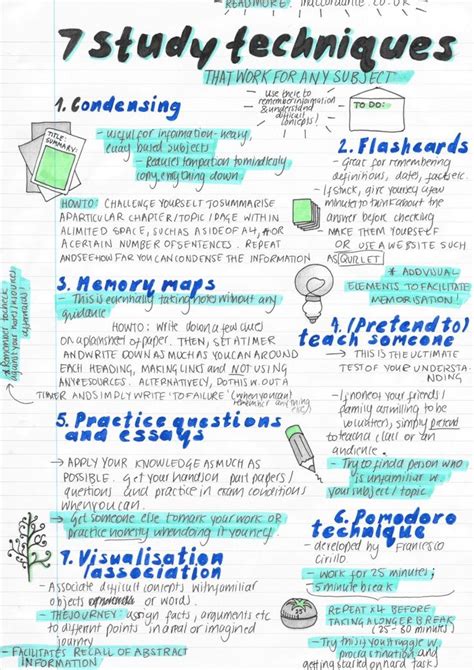 READ MORE:
7 study techniques
THAT WORK FOR ANY SUBJECT
use these to
remember information
& understand
difficult
concepts!
TO DO:
1. Condensing
- useful for information-heavy,
based subjects
- Reduces temptation to mindlessly
copy everything down
TITLE:
SUMMARY:
HOW TO: CHALLENGE YOURSELF TO SUMMARISE
A PARTICULAR CHAPTER/TOPIC/PAGE WITHIN
A LIMITED SPACE, SUCH AS A SIDE OF A4, OR
A CERTAIN NUMBER OF SENTENCES. REPEAT
AND SEE HOW FAR YOU CAN CONDENSE THE INFORMATION
2. Flashcards
- Great for remembering
definitions, dates, facts etc.
- If stuck, give yourself a few
minutes to think about the
answer before checking
- MAKE THEM YOURSELF
OR USE A WEBSITE SUCH
AS QUIZLET
* ADD VISUAL
ELEMENTS TO FACILITATE
MEMORISATION!
3. Memory maps
- This is essentially taking notes without any
guidance
HOW TO: Write down a few cues
on a plain sheet of paper. Then, set a timer
and write down as much as you can around
each heading, making lines and NOT using
any resources. Alternatively, do this w.out a
timer and simply write 'to failure' (when you can't
remember anything
etc)
* Remember to check
against your notes/resources
afterwards!
4. (Pretend to)
teach someone
→ THIS IS THE ULTIMATE
TEST OF YOUR UNDERSTA-
NDING
- If none of your friends/
family are willing to be
volunteers, simply pretend
to teach a class or an
audience.
- Try to find a person who
is unfamiliar w
your subject/topic
5. Practice questions
and essays
→ APPLY YOUR KNOWLEDGE AS MUCH AS
POSSIBLE. Get your hands on past papers/
questions and practice in exam conditions
when you can.
→ Get someone else to mark your work OR
practice honesty when doing it yourself
6. Pomodoro
technique
- developed by Francesco
Cirillo
- work for 25 minutes;
5 minute break
REPEAT X4 BEFORE
TAKING A LONGER BREAK
minutes)
- Try this if you struggle w
procrastination and
getting
7. Visualisation
/association
- Associate difficult concepts with familiar
objects or words.
- THE JOURNEY: assign facts, arguments etc
to different points in a real or imagined
journey
- FACILITATES RECALL OF ABSTRACT
INFORMATION